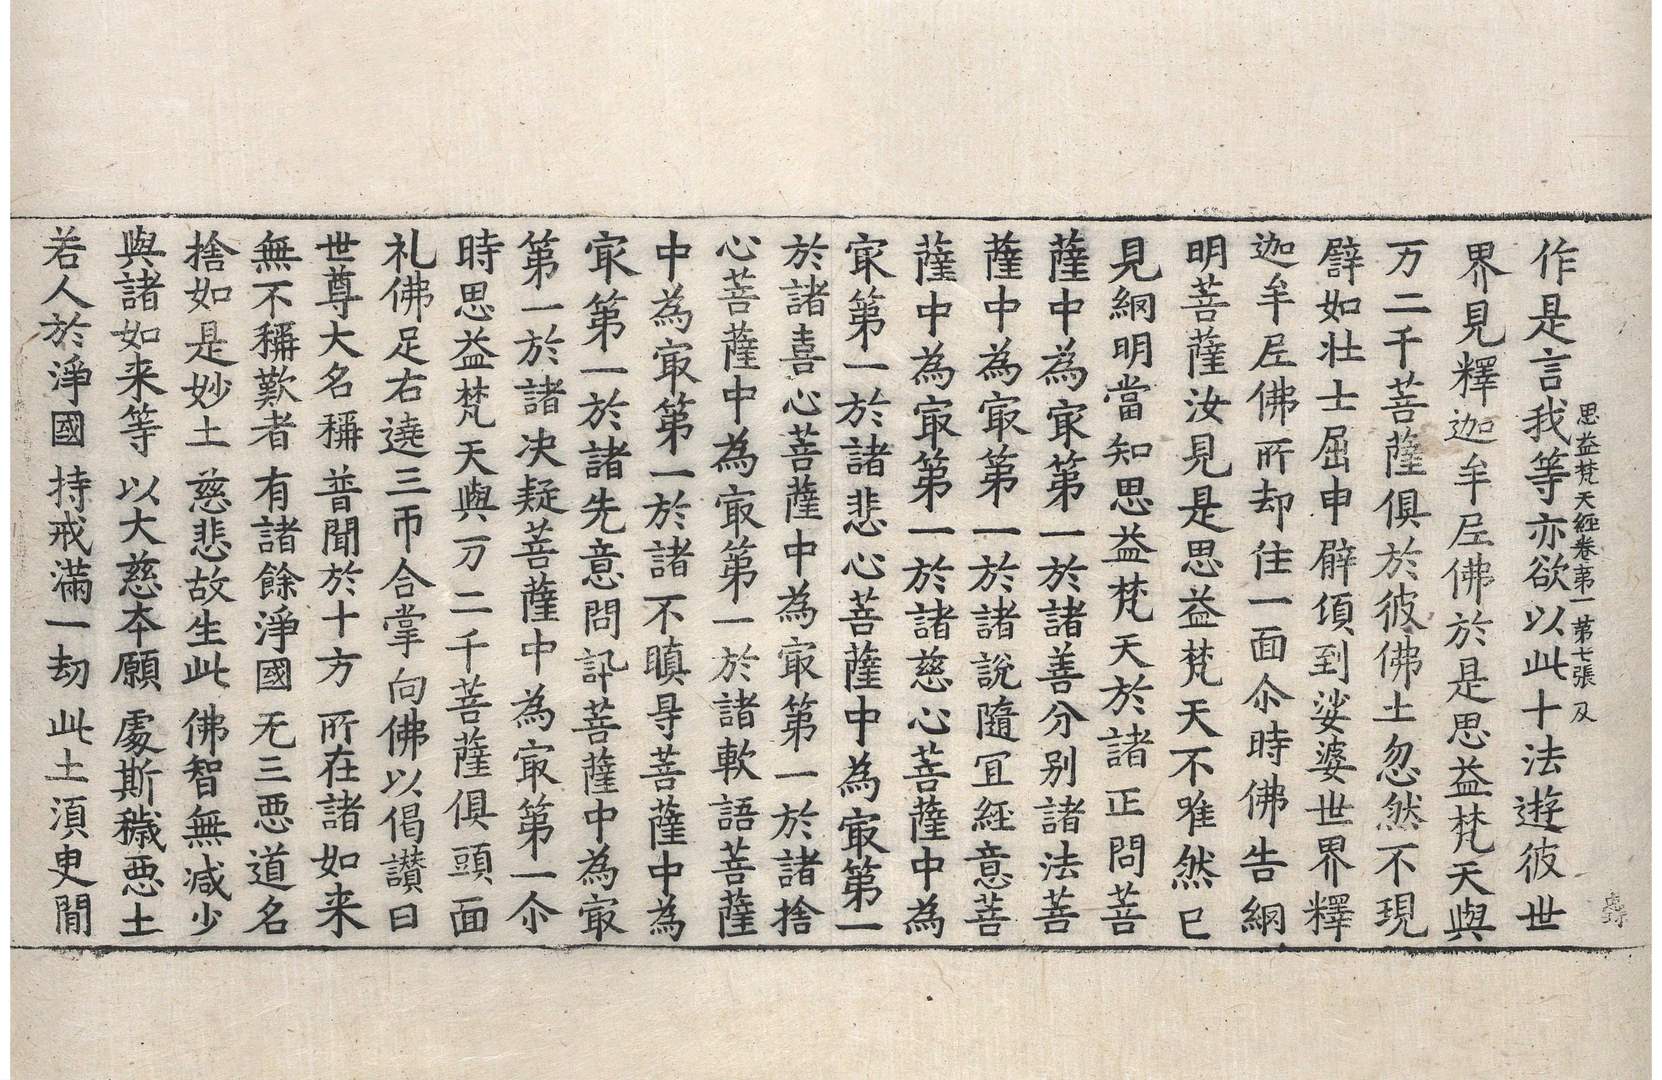 思益梵天經卷第一 第七張 及
作是言我等亦欲以此十法遊彼世
界見釋迦牟𡰱佛於是思益梵天與
万二千菩薩俱於彼佛土忽然不現
譬如壯士屈申臂頃到娑婆世界釋
迦牟𡰱佛所却住一面尒時佛告網
明菩薩汝見是思益梵天不唯然已
見網明當知思益梵天於諸正問菩
薩中為㝡第一於諸善分别諸法菩
薩中為㝡第一於諸說隨冝經意菩
薩中為㝡第一於諸慈心菩薩中為
㝡第一於諸悲心菩薩中為㝡第一
於諸喜心菩薩中為㝡第一於諸捨
心菩薩中為㝡第一於諸軟語菩薩
中為㝡第一於諸不瞋㝵菩薩中為
㝡第一於諸先意問訊菩薩中為㝡
第一於諸決疑菩薩中為㝡第一尒
時思益梵天與万二千菩薩俱頭面
礼佛足右遶三帀合掌向佛以偈讃曰
世尊大名稱 普聞於十方 所在諸如来
無不稱歎者 有諸餘淨國 无三惡道名
捨如是妙土 慈悲故生此 佛智無减少
與諸如来等 以大慈本願 處斯穢惡土
若人於淨國 持戒滿一劫 此土湏臾閒